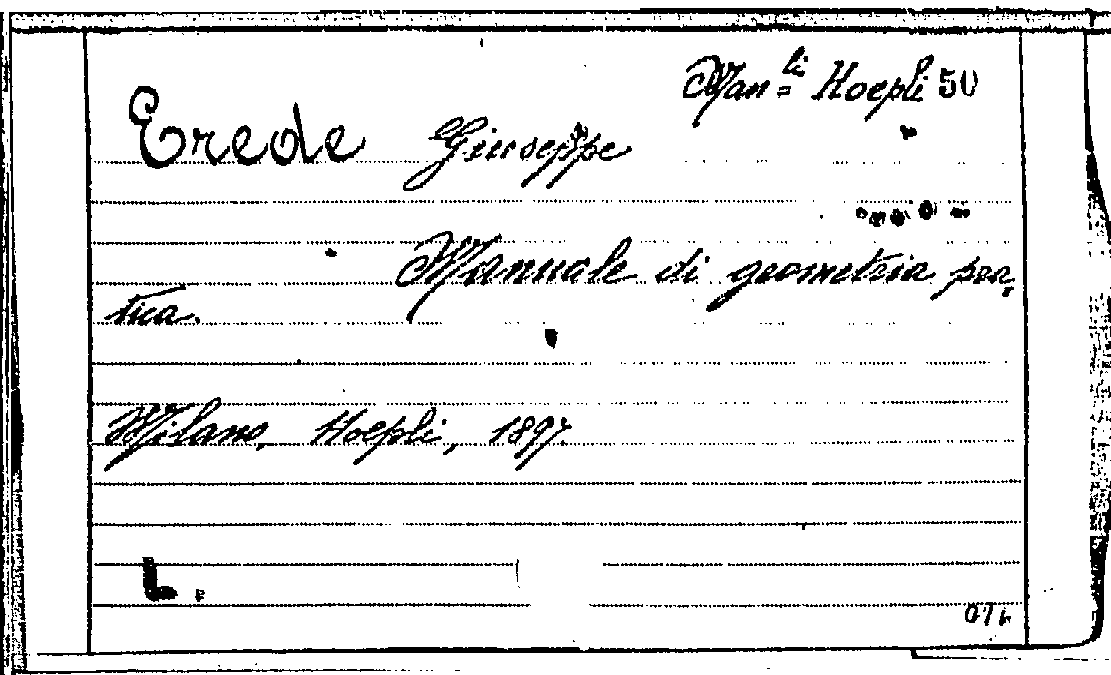 Man.li Hoepli 50
Erede Giuseppe
Manuale di geometria pra-
tica.
Milano, Hoepli, 1897.
L.